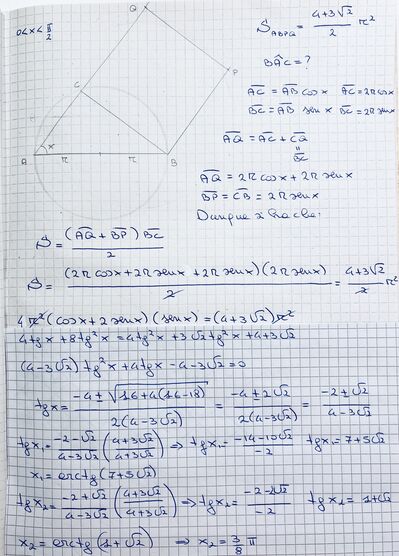 0<x<π/2
Q
P
C
x
A
r
r
B
S_ABPQ = (4+3√2)/2 r²
BÂC = ?
AC = AB cos x AC = 2r cos x
BC = AB sen x BC = 2r sen x
AQ = AC + CQ
=
BC
AQ = 2r cos x + 2r sen x
BP = CB = 2r sen x
Dunque si ha che:
S = (AQ + BP) BC / 2
S = (2r cos x + 2r sen x + 2r sen x)(2r sen x) / 2 = (4+3√2)/2 r²
4r² (cos x + 2 sen x)(sen x) = (4+3√2) r²
4tg x + 8tg² x = 4tg² x + 3√2 tg² x + 4+3√2
(4-3√2) tg² x + 4tg x - 4-3√2 = 0
tg x = (-4 ± √(16+4(16-18))) / 2(4-3√2) = (-4 ± 2√2) / 2(4-3√2) = (-2 ± √2) / (4-3√2)
tg x₁ = (-2-√2)/(4-3√2) ((4+3√2)/(4+3√2)) ⇒ tg x₁ = (-14-10√2)/-2 tg x₁ = 7+5√2
x₁ = arctg (7+5√2)
tg x₂ = (-2+√2)/(4-3√2) ((4+3√2)/(4+3√2)) ⇒ tg x₂ = (-2-2√2)/-2 tg x₂ = 1+√2
x₂ = arctg (1+√2) ⇒ x₂ = 3/8 π